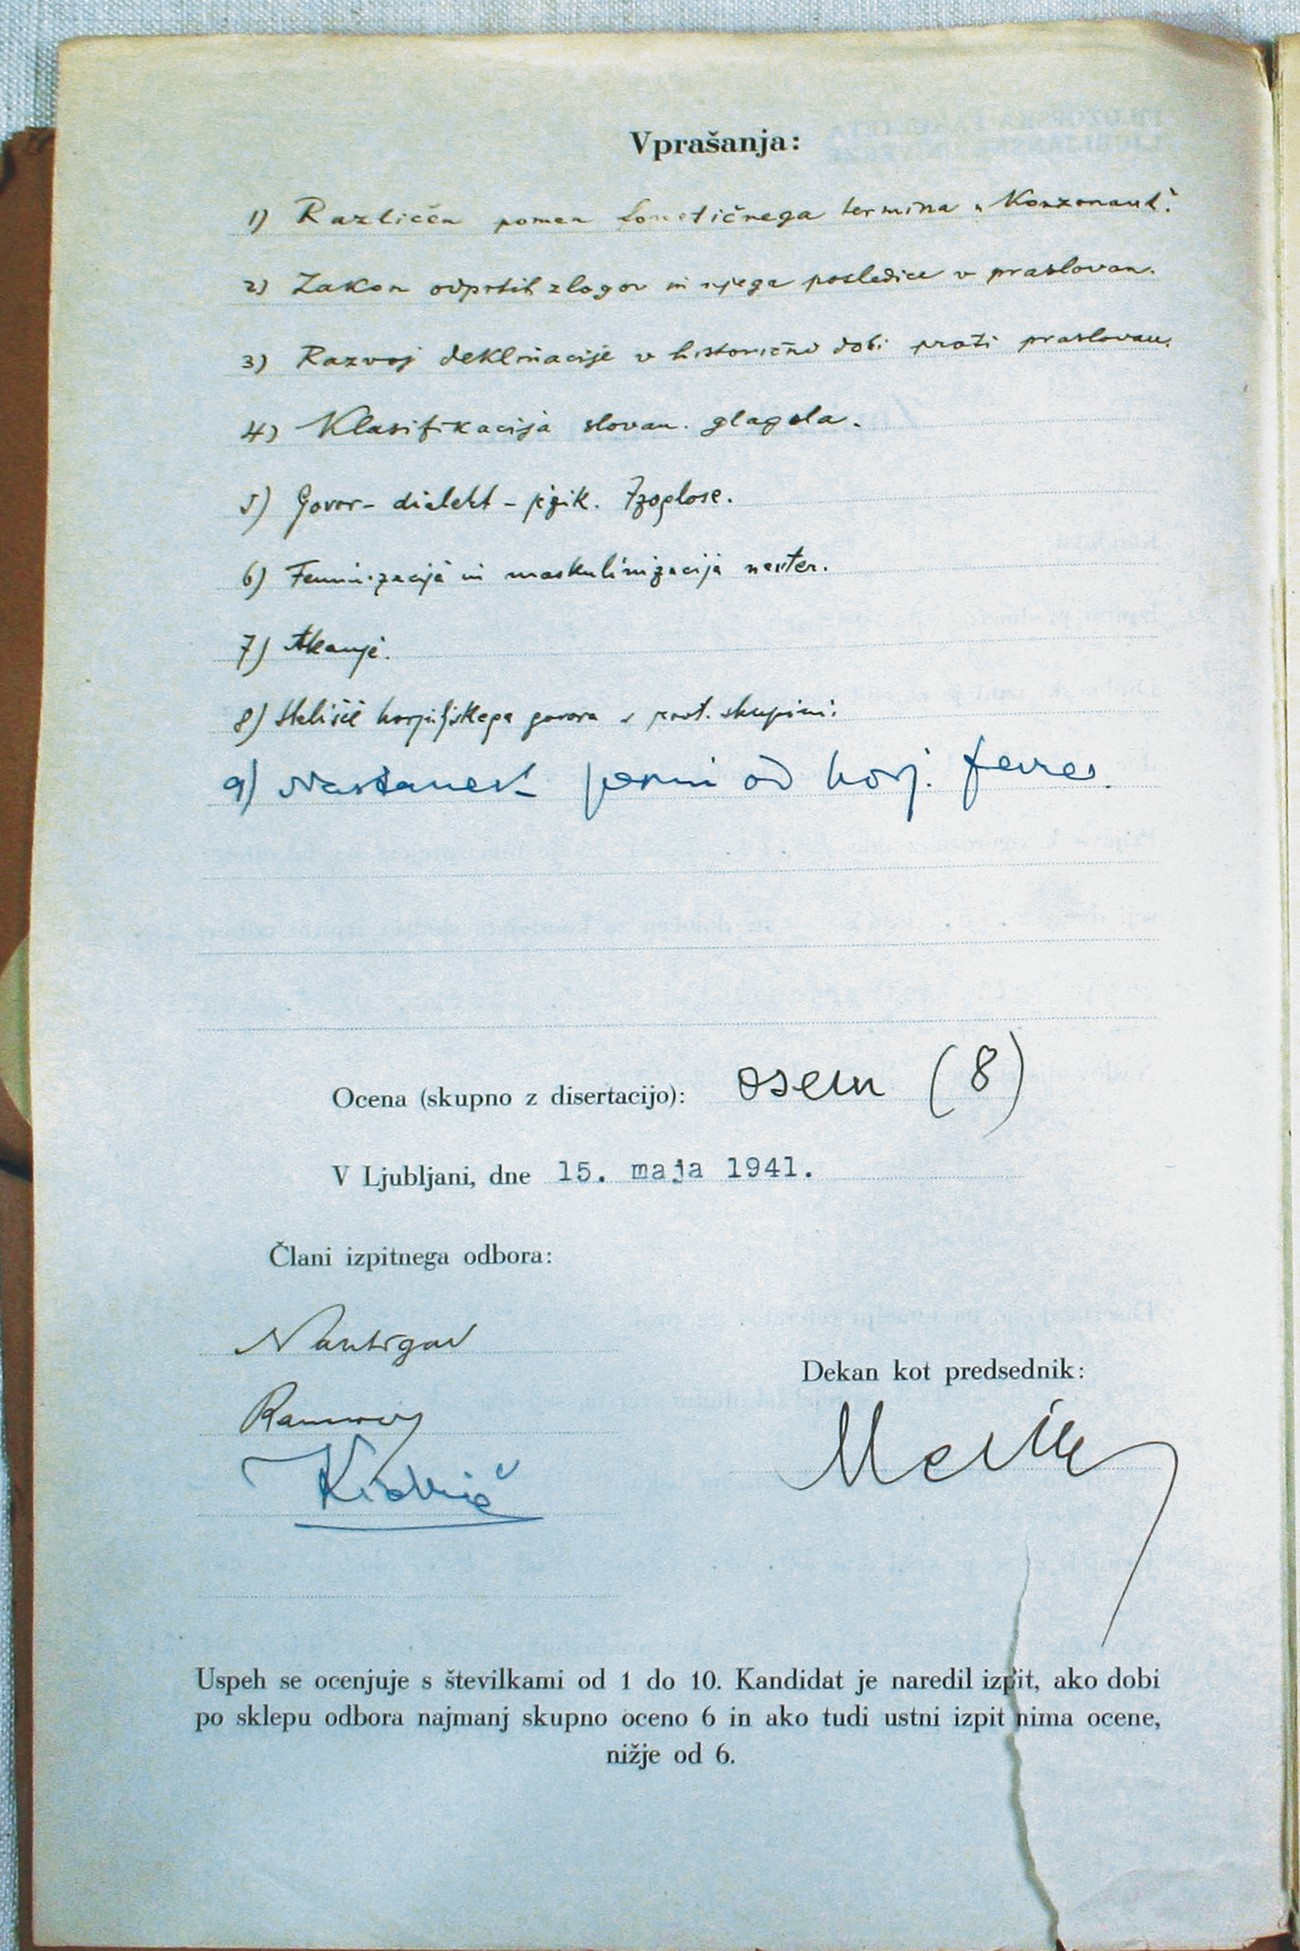 Vprašanja:
1) Različen pomen fonetičnega termina „Konzonant".
2) Zakon odprtih zlogov in njega posledice v praslovan.
3) Razvoj deklinacije v historični dobi proti praslovan.
4) Klasifikacija slovan. glagola.
5) Govor – dialekt – jezik. Izoglose.
6) Feminizacija in maskulinizacija neuter.
7) Akanje.
8) Stališče horjulskega govora v rovt. skupini.
9) Nastanek pesmi od horj.
Ocena (skupno z disertacijo): osem (8)
V Ljubljani, dne 15. maja 1941.
Člani izpitnega odbora:
Nahtigal
Ramovš
Dekan kot predsednik:
Kidrič
Uspeh se ocenjuje s številkami od 1 do 10. Kandidat je naredil izpit, ako dobi
po sklepu odbora najmanj skupno oceno 6 in ako tudi ustni izpit nima ocene,
nižje od 6.